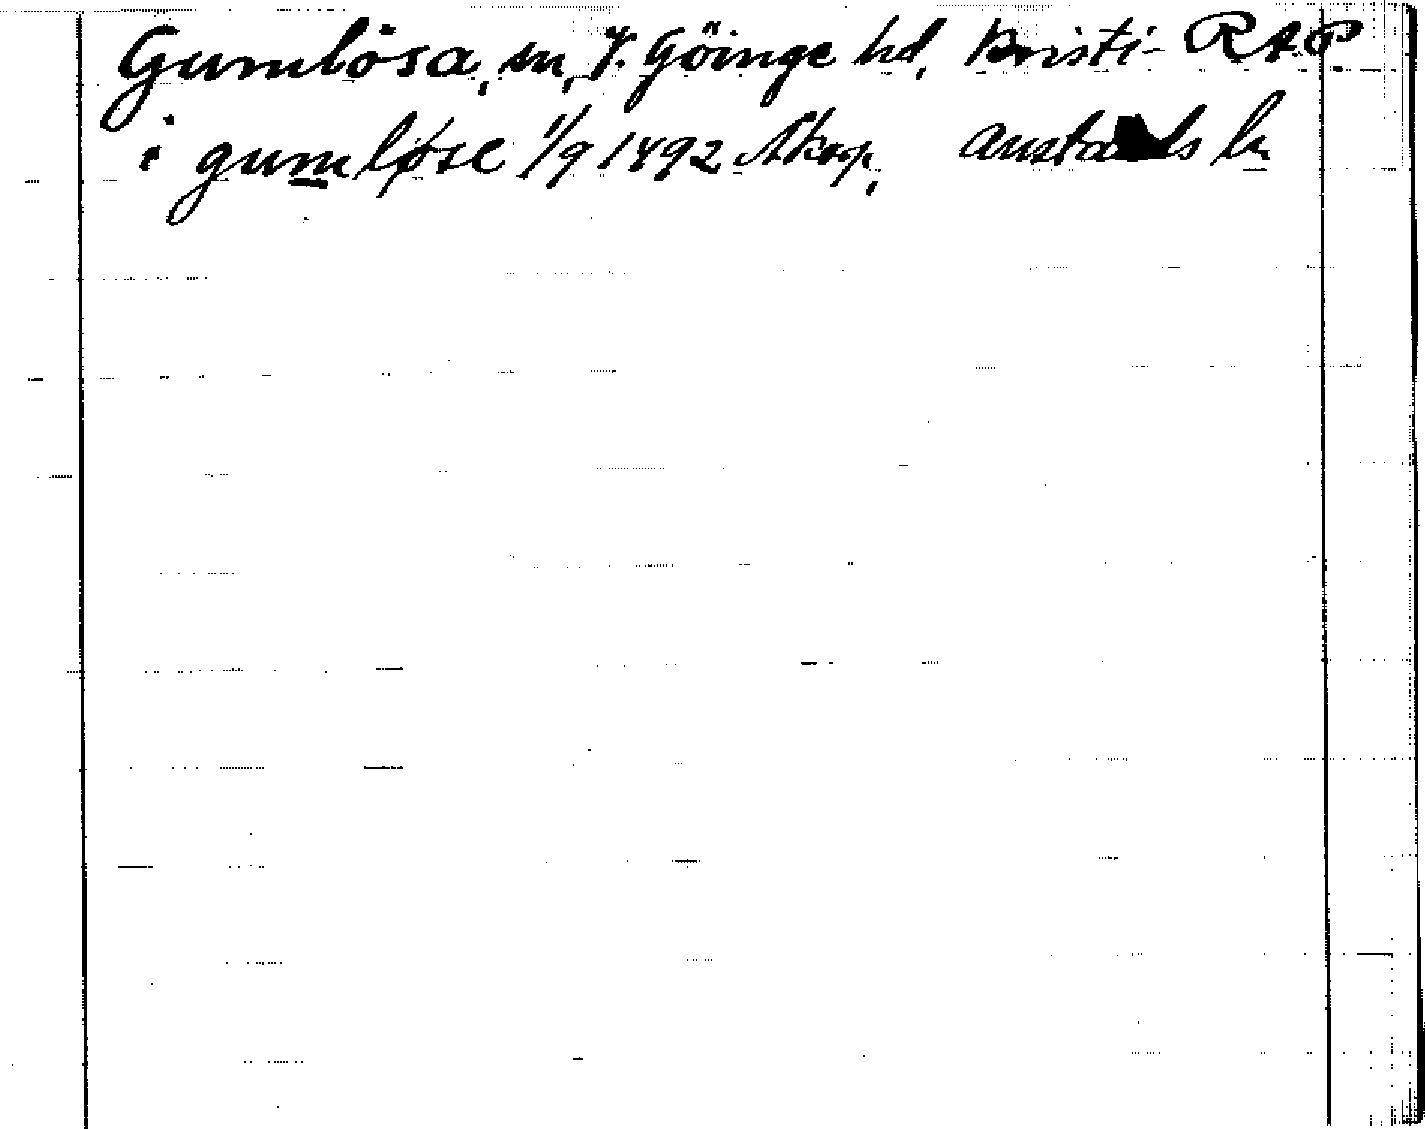 Gumlösa, sn, V. Göinge hd, Kristi- RAP
i gumløse 1/9 1492 Akop, anstads ln